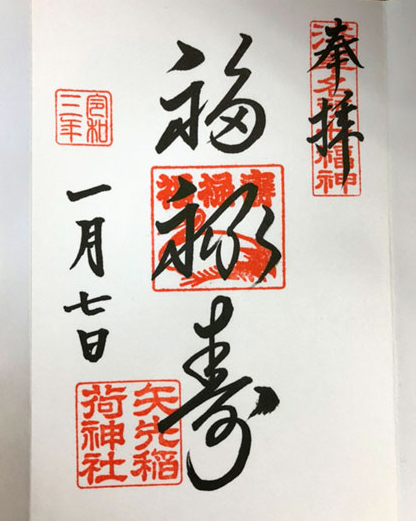 奉拝
浅草名所七福神
福禄寿
福禄壽
令和
三年
一月七日
矢先稲
荷神社